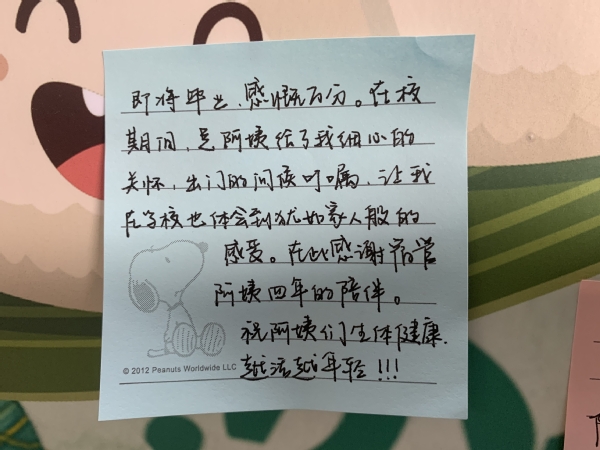 即将毕业，感慨万分。在校
期间，是阿姨给了我细心的
关怀，出门的问候叮嘱，让我
在学校也体会到犹如家人般的
感爱。在此感谢宿管
阿姨四年的陪伴。
祝阿姨们生体健康，
越活越年轻！！！
© 2012 Peanuts Worldwide LLC